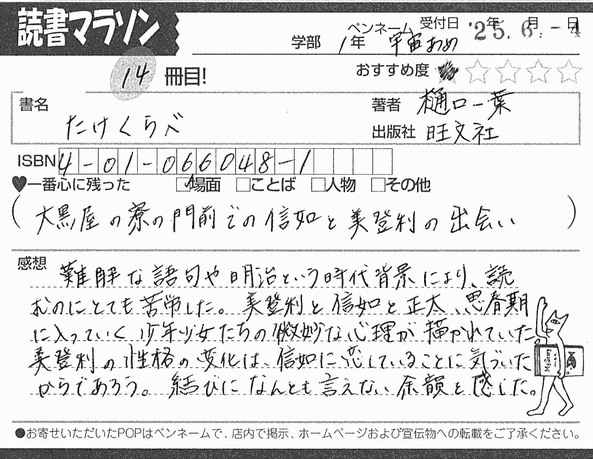 読書マラソン
ペンネーム 受付日 '25.6.-4 年 月 日
学部 1年 宇宙あめ
14 冊目! おすすめ度 ★☆☆☆☆
書名 たけくらべ
著者 樋口一葉
出版社 旺文社
ISBN 4-01-066048-1
♥一番心に残った ☑場面 □ことば □人物 □その他
(大黒屋の寮の門前での信如と美登利の出会い)
感想
難解な語句や明治という時代背景により、読
むのにとても苦労した。美登利と信如と正太、思春期
に入っていく少年少女たちの微妙な心理が描かれていた。
美登利の性格の変化は、信如に恋していることに気づいた
からであろう。結びになんとも言えない余韻を感じた。
●お寄せいただいたPOPはペンネームで、店内で掲示、ホームページおよび宣伝物への転載をご了承ください。